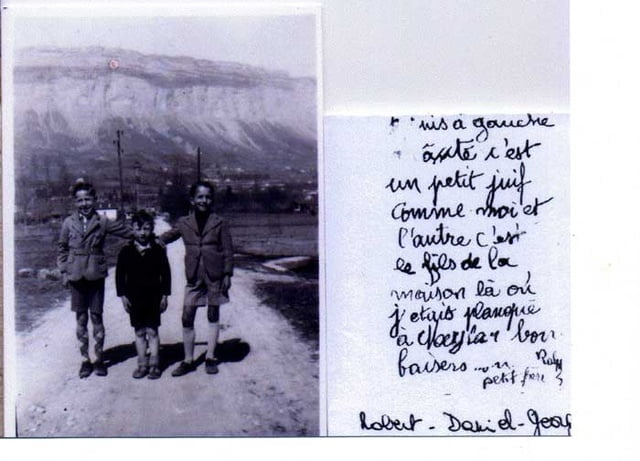 suis à gauche
à côté c'est
un petit juif
comme moi et
l'autre c'est
le fils de la
maison là où
j'étais planqué
à Meylan bon
baisers
petit frère
Robert - Daniel - Georg